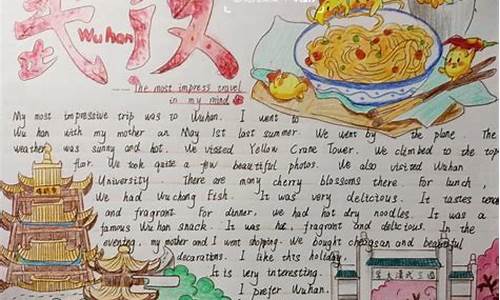 武汉
Wu han
The most impress travel
in my mind
My most impressive trip was to Wuhan. I went to
Wu han with my mother on May 1st last summer. We went by the plane. The
weather was sunny and hot. We visited Yellow Crane Tower. We climbed to the top
floor. We took quite a few beautiful photos. We also visited Wuhan
University. There are many cherry blossoms there. For lunch,
we had Wuchang Fish. It was very delicious. It tastes
and fragrant. For dinner, we had hot dry noodles. It was a
famous Wuhan snack. It was hot, fragrant and delicious. In the
evening, my mother and I went shopping. We bought and beautiful
decorations. I like this holiday.
It is very interesting.
I prefer Wuhan.